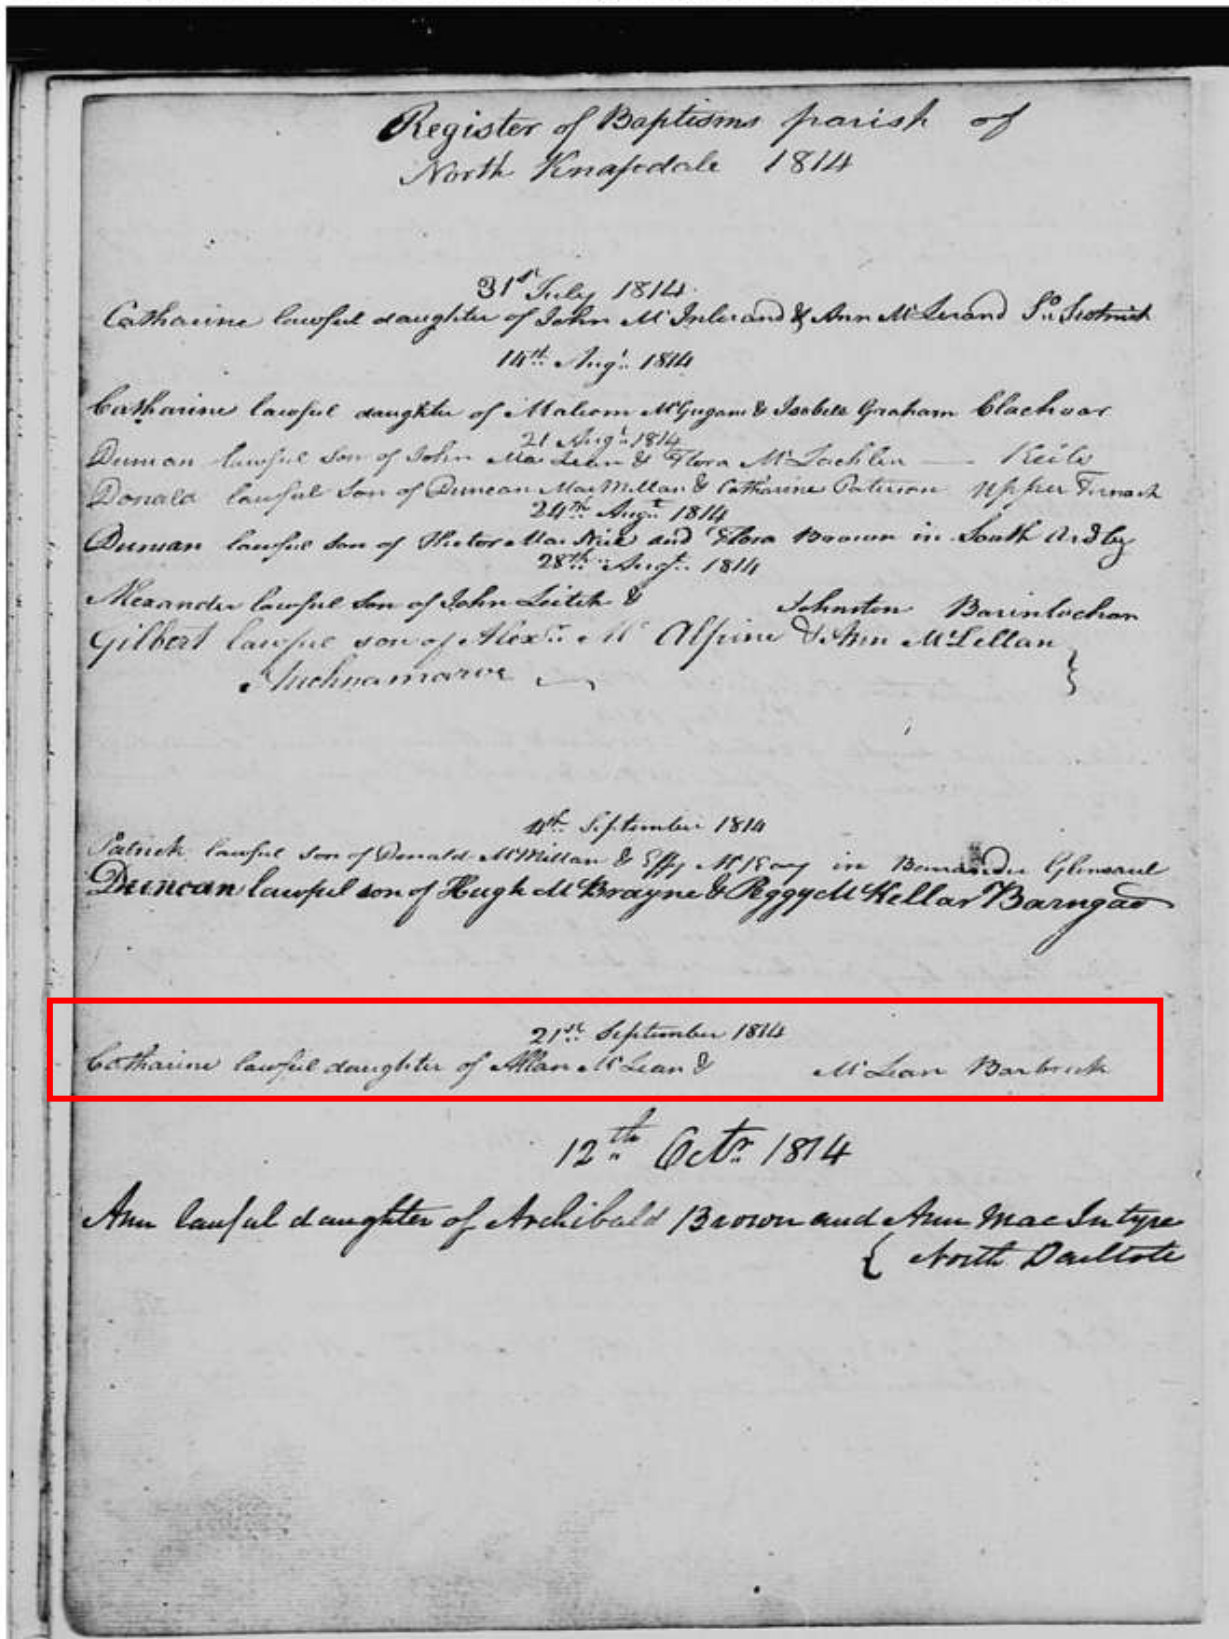 Register of Baptisms parish of
North Knapdale 1814
31st July 1814
Catharine lawful daughter of John Mc & Ann Mc So
14th Augt. 1814
Catharine lawful daughter of Malcom McGugan & Isabela Graham
21 Augt. 1814
Duncan lawful Son of John Mac Lean & Flora McLachlan — Keils
Donald lawful Son of Duncan MacMillan & Catharine Paterson Upper
24th Augt 1814
Duncan lawful Son of Hector Mac and Flora Brown in South
28th Augt. 1814
Alexander lawful Son of John Leitch & Johnston Barinlochan
Gilbert lawful son of Alexr. Mc Alpine & Ann McLellan
4th September 1814
Patrick lawful Son of Donald McMillan & Effy in
Duncan lawful son of Hugh McBrayne & Peggy McKellar Barngad
21st September 1814
Catharine lawful daughter of Allan McLean & McLean
12th Octr. 1814
Ann lawful daughter of Archibald Brown and Ann Mac Intyre
{ North Daultote